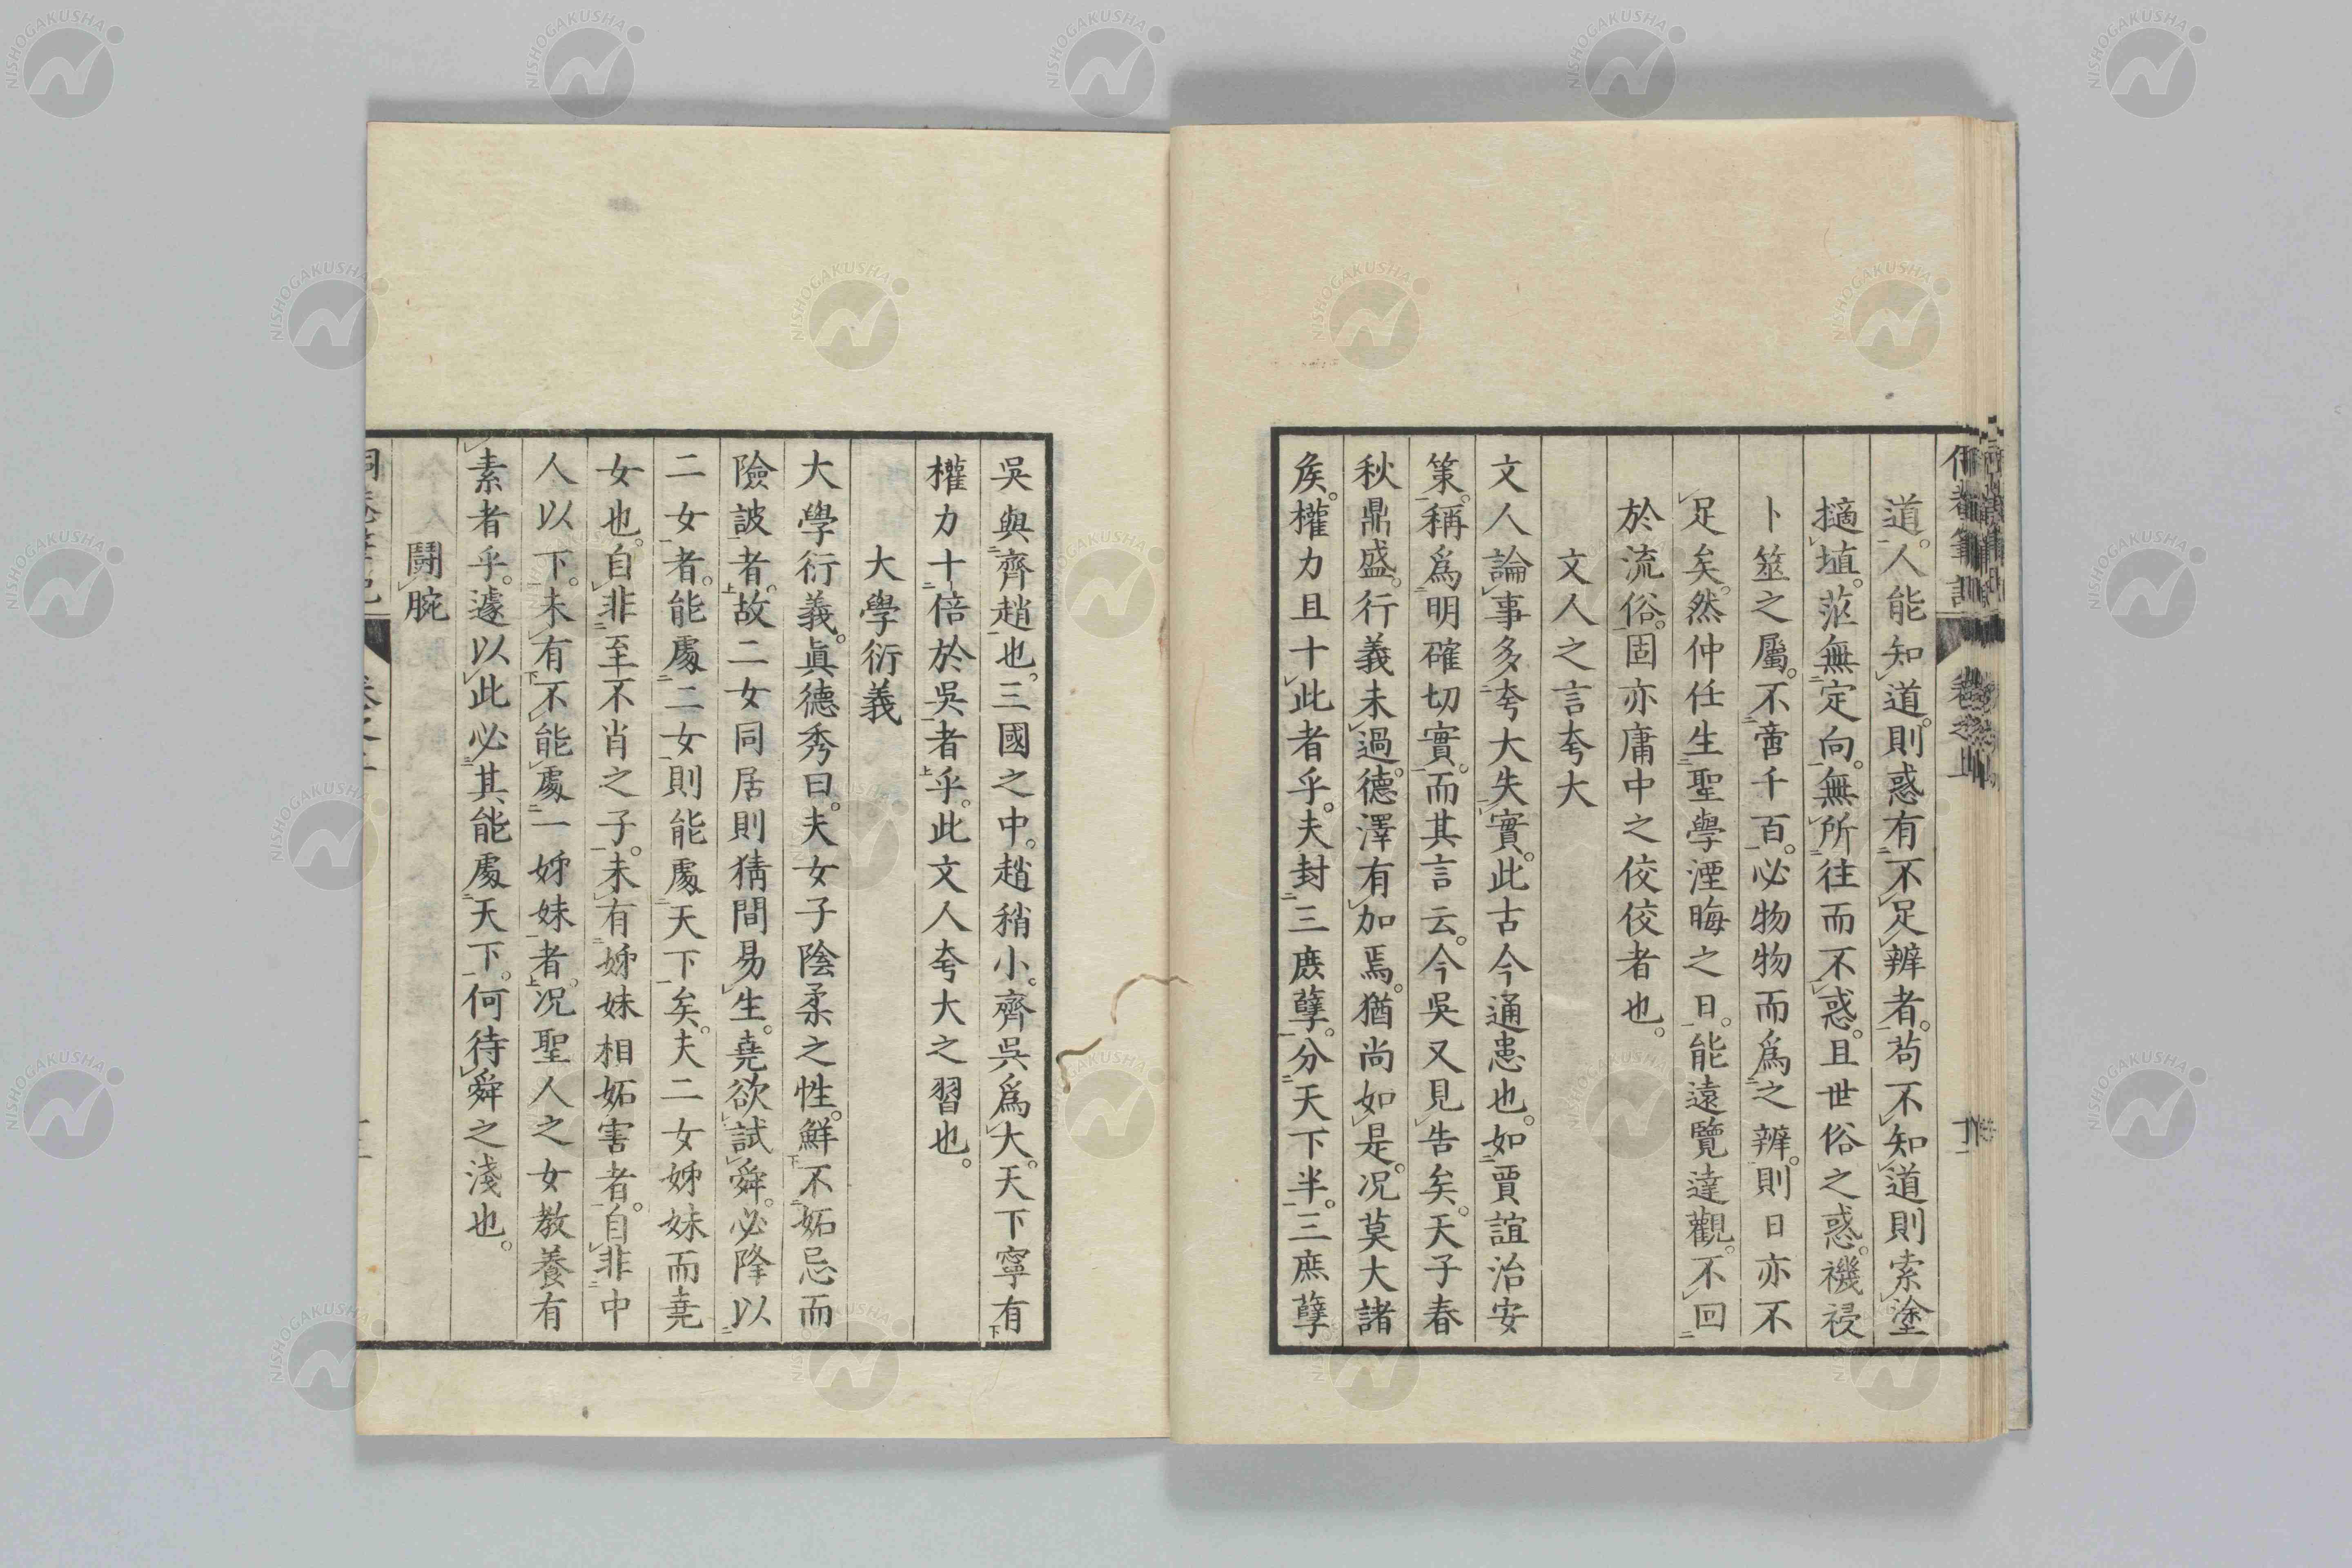 道。人能知道。則惑有不足辨者。苟不知道則索塗
擿埴。茫無定向。無所往而不惑。且世俗之惑。禨祲
卜筮之屬。不啻千百。必物物而爲之辨。則日亦不
足矣。然仲任生聖學湮晦之日。能遠覽達觀。不回
於流俗。固亦庸中之佼佼者也。
文人之言夸大
文人論事多夸大失實。此古今通患也。如賈誼治安
策。稱爲明確切實。而其言云。今吳又見告矣。天子春
秋鼎盛。行義未過。德澤有加焉。猶尚如是。况莫大諸
矦。權力且十此者乎。夫封三庶孼。分天下半。三庶孼
吳與齊趙也。三國之中。趙稍小。齊吳爲大。天下寧有
權力十倍於吳者乎。此文人夸大之習也。
大學衍義
大學衍義。眞德秀曰。夫女子陰柔之性。鮮不妬忌而
險詖者。故二女同居則猜間易生。堯欲試舜。必降以
二女者。能處二女則能處天下矣。夫二女姊妹而堯
女也。自非至不肖之子。未有姊妹相妬害者。自非中
人以下。未有不能處一姊妹者。况聖人之女教養有
素者乎。遽以此必其能處天下。何待舜之淺也。
鬪腕
NISHOGAKUSHA